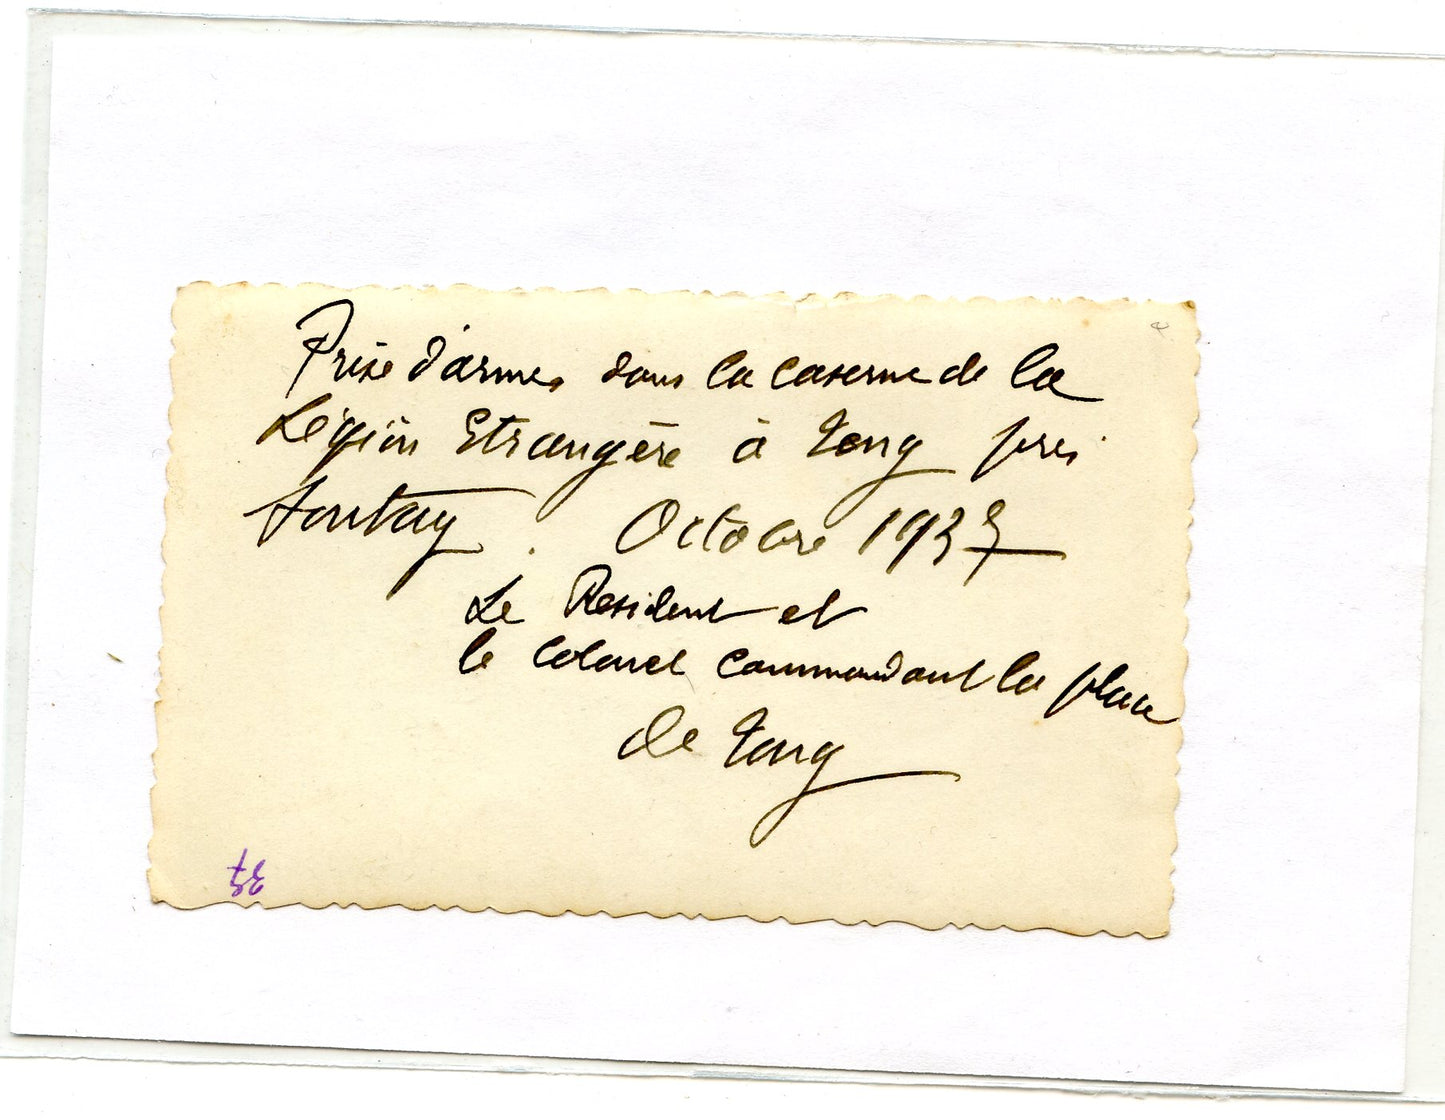 Prise d'armes dans la caserne de la
Légion Etrangère à Tong près
Sontay. Octobre 1937
Le Resident et
le Colonel Commandant la place
de Tong